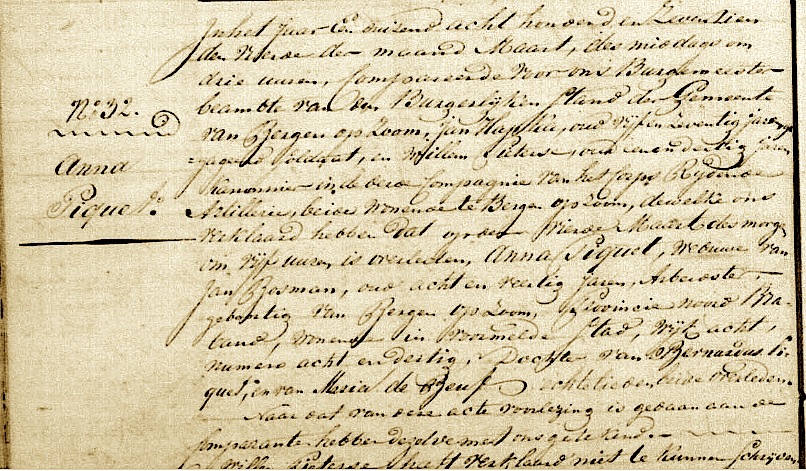 No. 32.
Anna
Piquet.
In het Jaar Een duizend acht honderd en Zeventien
den vierde der maand Maart, des middags om
drie uuren, Compareerde voor ons Burgemeester
beambte van den Burgerlijken Stand der Gemeente
van Bergen op Zoom, Jan oud vijf en Zeventig Jaren,
gepageerd Soldaat, en Willem Pieterse, oud een en dertig Jaren
Kanonnier in de derde Compagnie van het corps Rijdende
Artillerie, beide wonende te Bergen op Zoom, dewelke ons
verklaard hebben dat op den vierde Maart des morgens
om vijf uuren is overleden, Anna Piquet, weduwe van
Jan Bosman, oud acht en veertig Jaren, Arbeidster,
geboortig van Bergen op Zoom, Provincie Noord Bra-
band, wonende in voormelde Stad, wijk acht,
numero acht en dertig, Dochter van Bernardus Pi-
quet, en van Maria de Beuf echtelieden beide overleden
Naar dat van deze acte voorlezing is gedaan aan de
Comparanten hebben dezelve met ons getekend.
Willem Pieterse heeft verklaard niet te kunnen schrijven